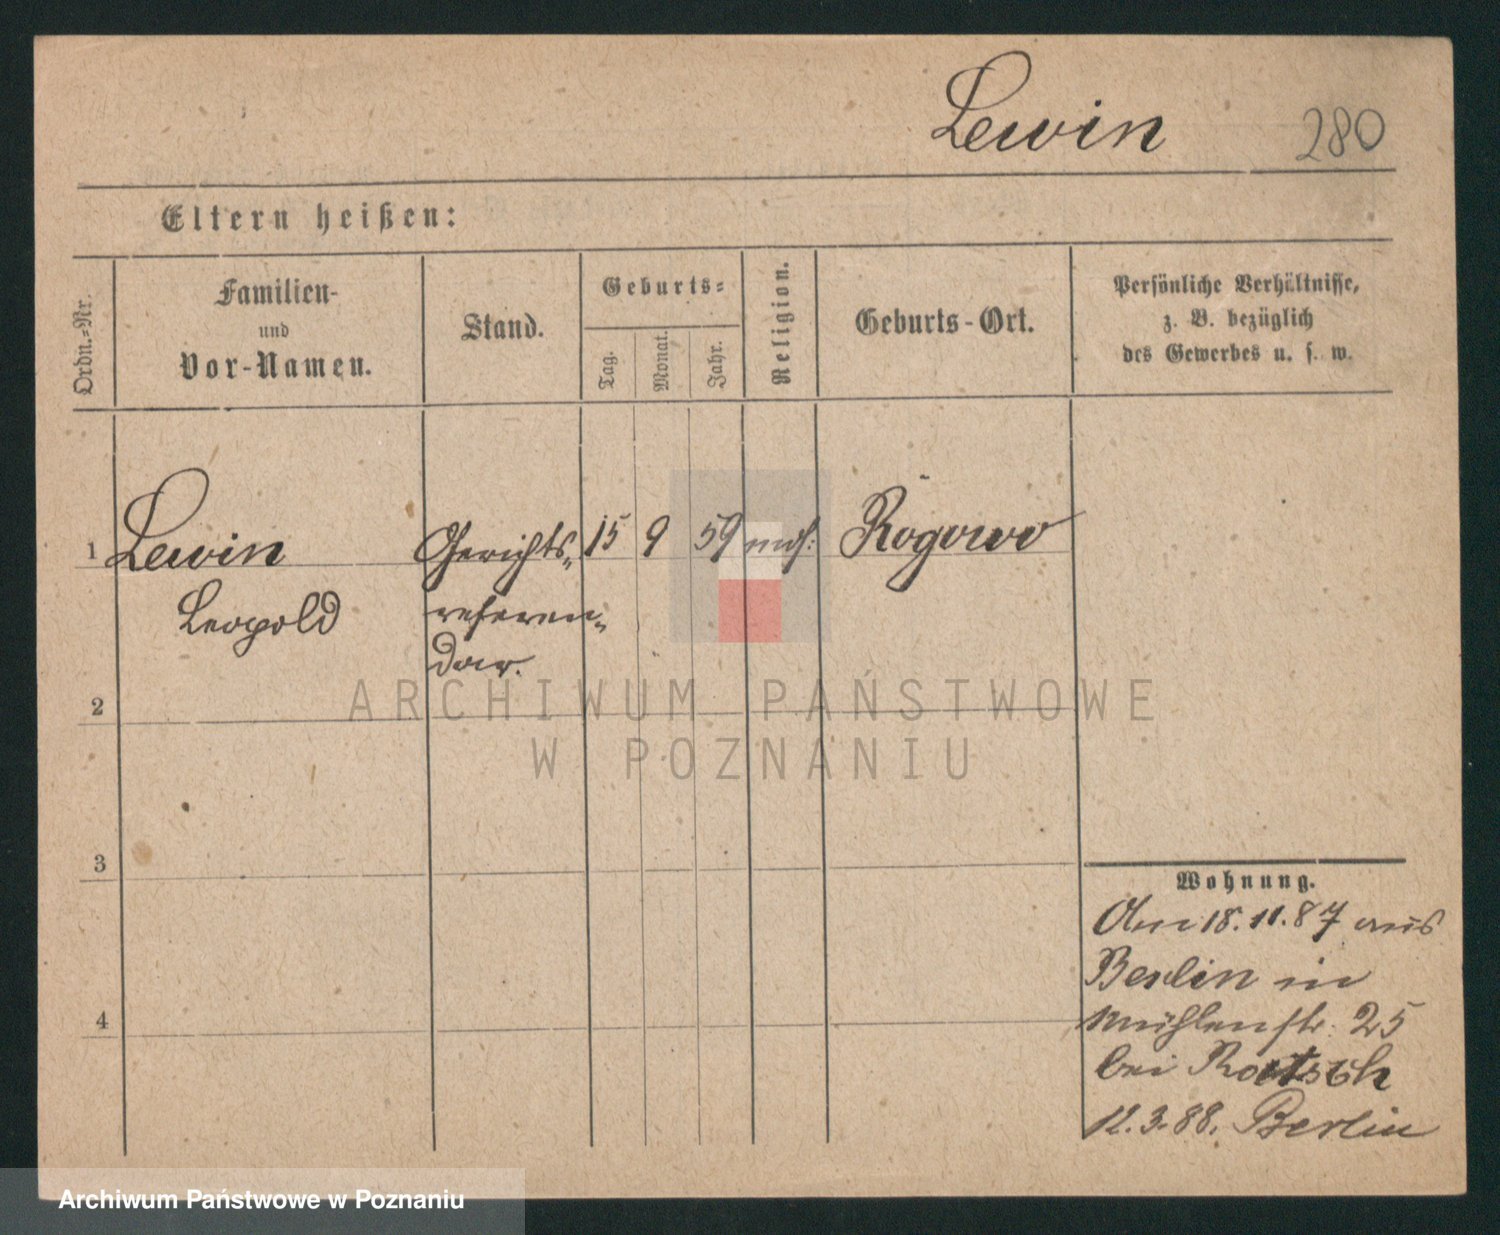 Lewin 280
Eltern heißen:
Ordn.-Nr.
Familien-
und
Vor-Namen.
Stand.
Geburts-
Tag.
Monat.
Jahr.
Religion.
Geburts-Ort.
Persönliche Verhältnisse,
z. B. bezüglich
des Gewerbes u. s. w.
1 Lewin Gerichts- 15 9 59 mos: Rogowo
Leopold referen-
dar.
2
3
4
Wohnung.
Am 18.11.87 aus
Berlin in
Mühlenstr. 25
bei
12.3.88. Berlin
ARCHIWUM PAŃSTWOWE
W POZNANIU
Archiwum Państwowe w Poznaniu